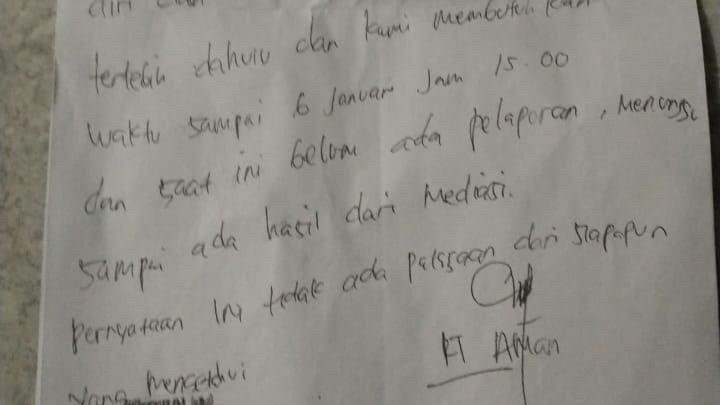 diri dan
terlebih dahulu dan kami membutuhkan
waktu sampai 6 Januari Jam 15.00
dan saat ini belum ada pelaporan, menunggu
sampai ada hasil dari mediasi.
pernyataan ini tidak ada paksaan dari siapapun
RT Aman
Yang mengetahui